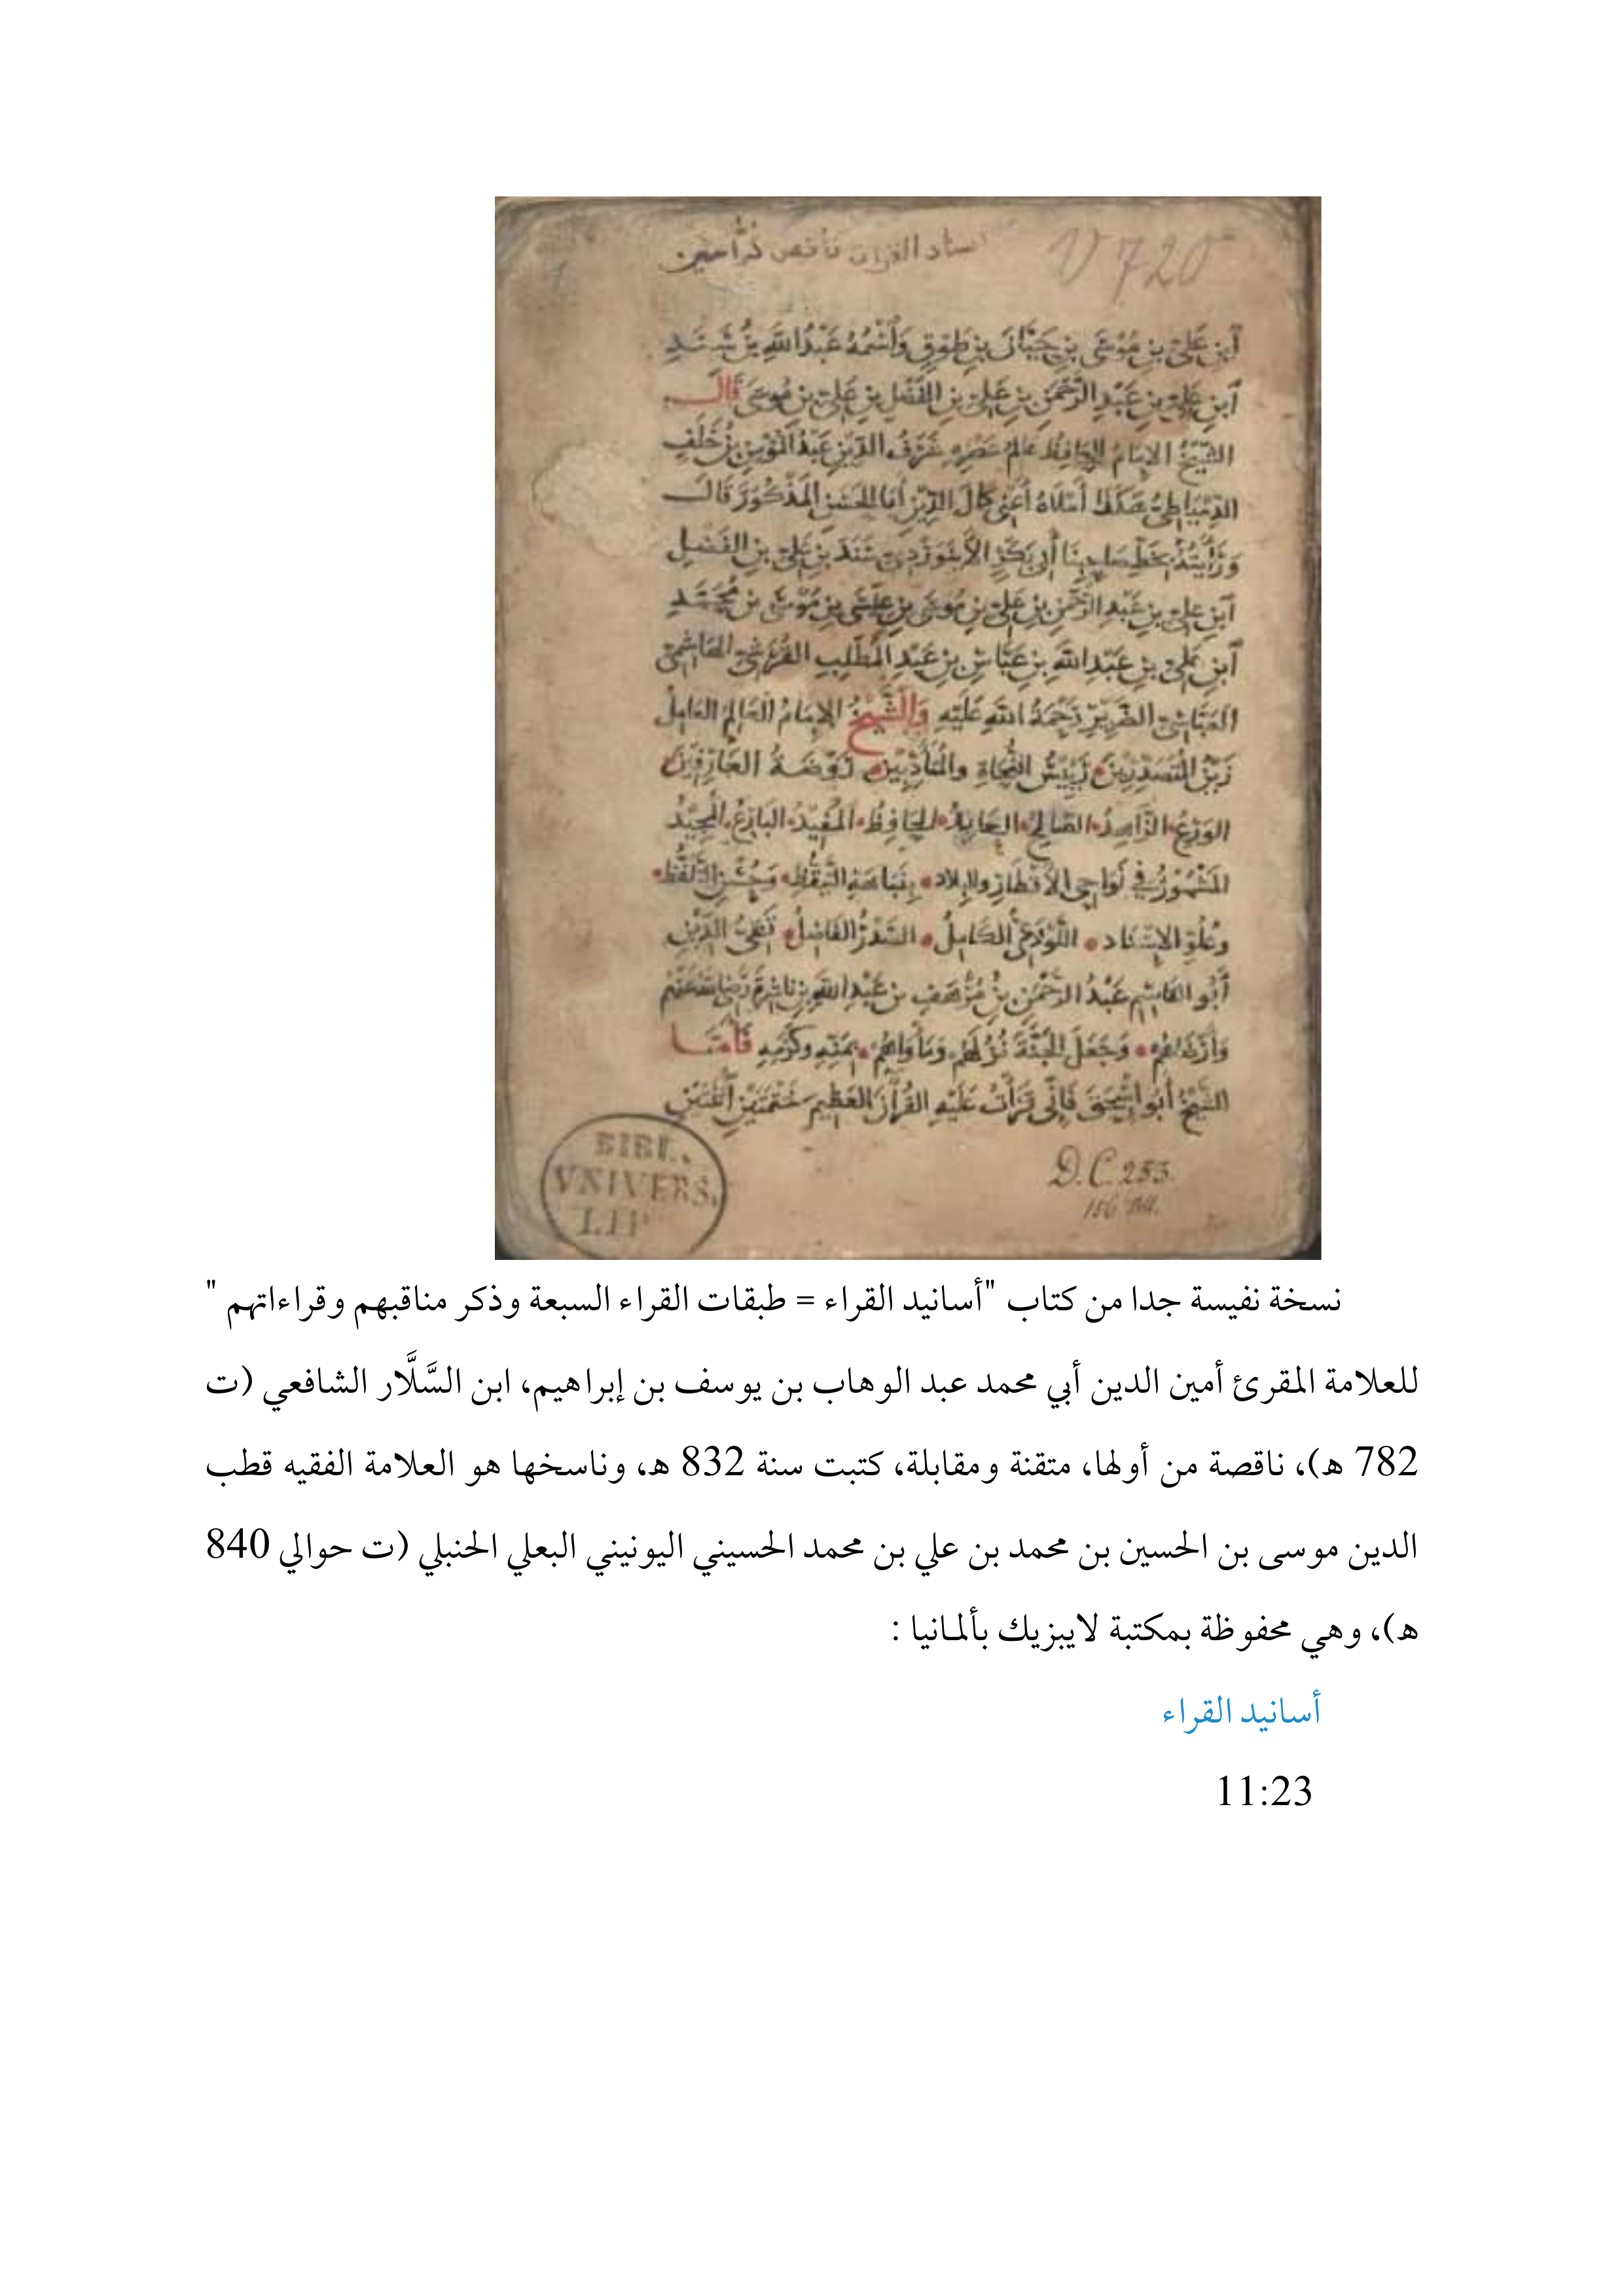 اسناد القراات ناقص كراسين
V 720
ابن علي بن موسى بن حسان بن طوق واسمه عبد الله بن سند
ابن علي بن عبد الرحمن بن علي بن الفضل بن علي بن موسى قال
الشيخ الإمام الحافظ عالم عصره شرف الدين عبد المؤمن بن خلف
الدمياطي هكذا أملاه أعني كمال الدين أبا الحسن المذكور قال
ورأيته بخط صاحبنا أبي بكر الأبيوردي سند بن علي بن الفضل
ابن علي بن عبد الرحمن بن علي بن موسى بن عيسى بن موسى بن محمد
ابن علي بن عبد الله بن عباس بن عبد المطلب القرشي الهاشمي
العباسي الضرير رحمة الله عليه والشيخ الإمام العالم العامل
زين المتصدرين رئيس النحاة والمتأدبين روضة العارفين
الورع الزاهد الصالح العابد الحافظ المفيد البارع المجيد
المشهور في نواحي الأقطار والبلاد بنباهة التيقظ وحسن التلفظ
وعلو الإسناد اللوذعي الكامل الصدر الفاضل تقي الدين
أبو القاسم عبد الرحمن بن مرهف بن عبد الله بن ناشرة رضي الله عنهم
وأرضاهم وجعل الجنة نزلهم ومأواهم بمنه وكرمه فأما
الشيخ أبو إسحق فإني قرأت عليه القرآن العظيم ختمتين اثنتين
BIBL.
VNIVERS.
LIP
D.C. 253.
نسخة نفيسة جدا من كتاب "أسانيد القراء = طبقات القراء السبعة وذكر مناقبهم وقراءاتهم "
للعلامة المقرئ أمين الدين أبي محمد عبد الوهاب بن يوسف بن إبراهيم، ابن السَّلَّار الشافعي (ت
782 هـ)، ناقصة من أولها، متقنة ومقابلة، كتبت سنة 832 هـ، وناسخها هو العلامة الفقيه قطب
الدين موسى بن الحسين بن محمد بن علي بن محمد الحسيني اليونيني البعلي الحنبلي (ت حوالي 840
هـ)، وهي محفوظة بمكتبة لايبزيك بألمانيا :
أسانيد القراء
11:23